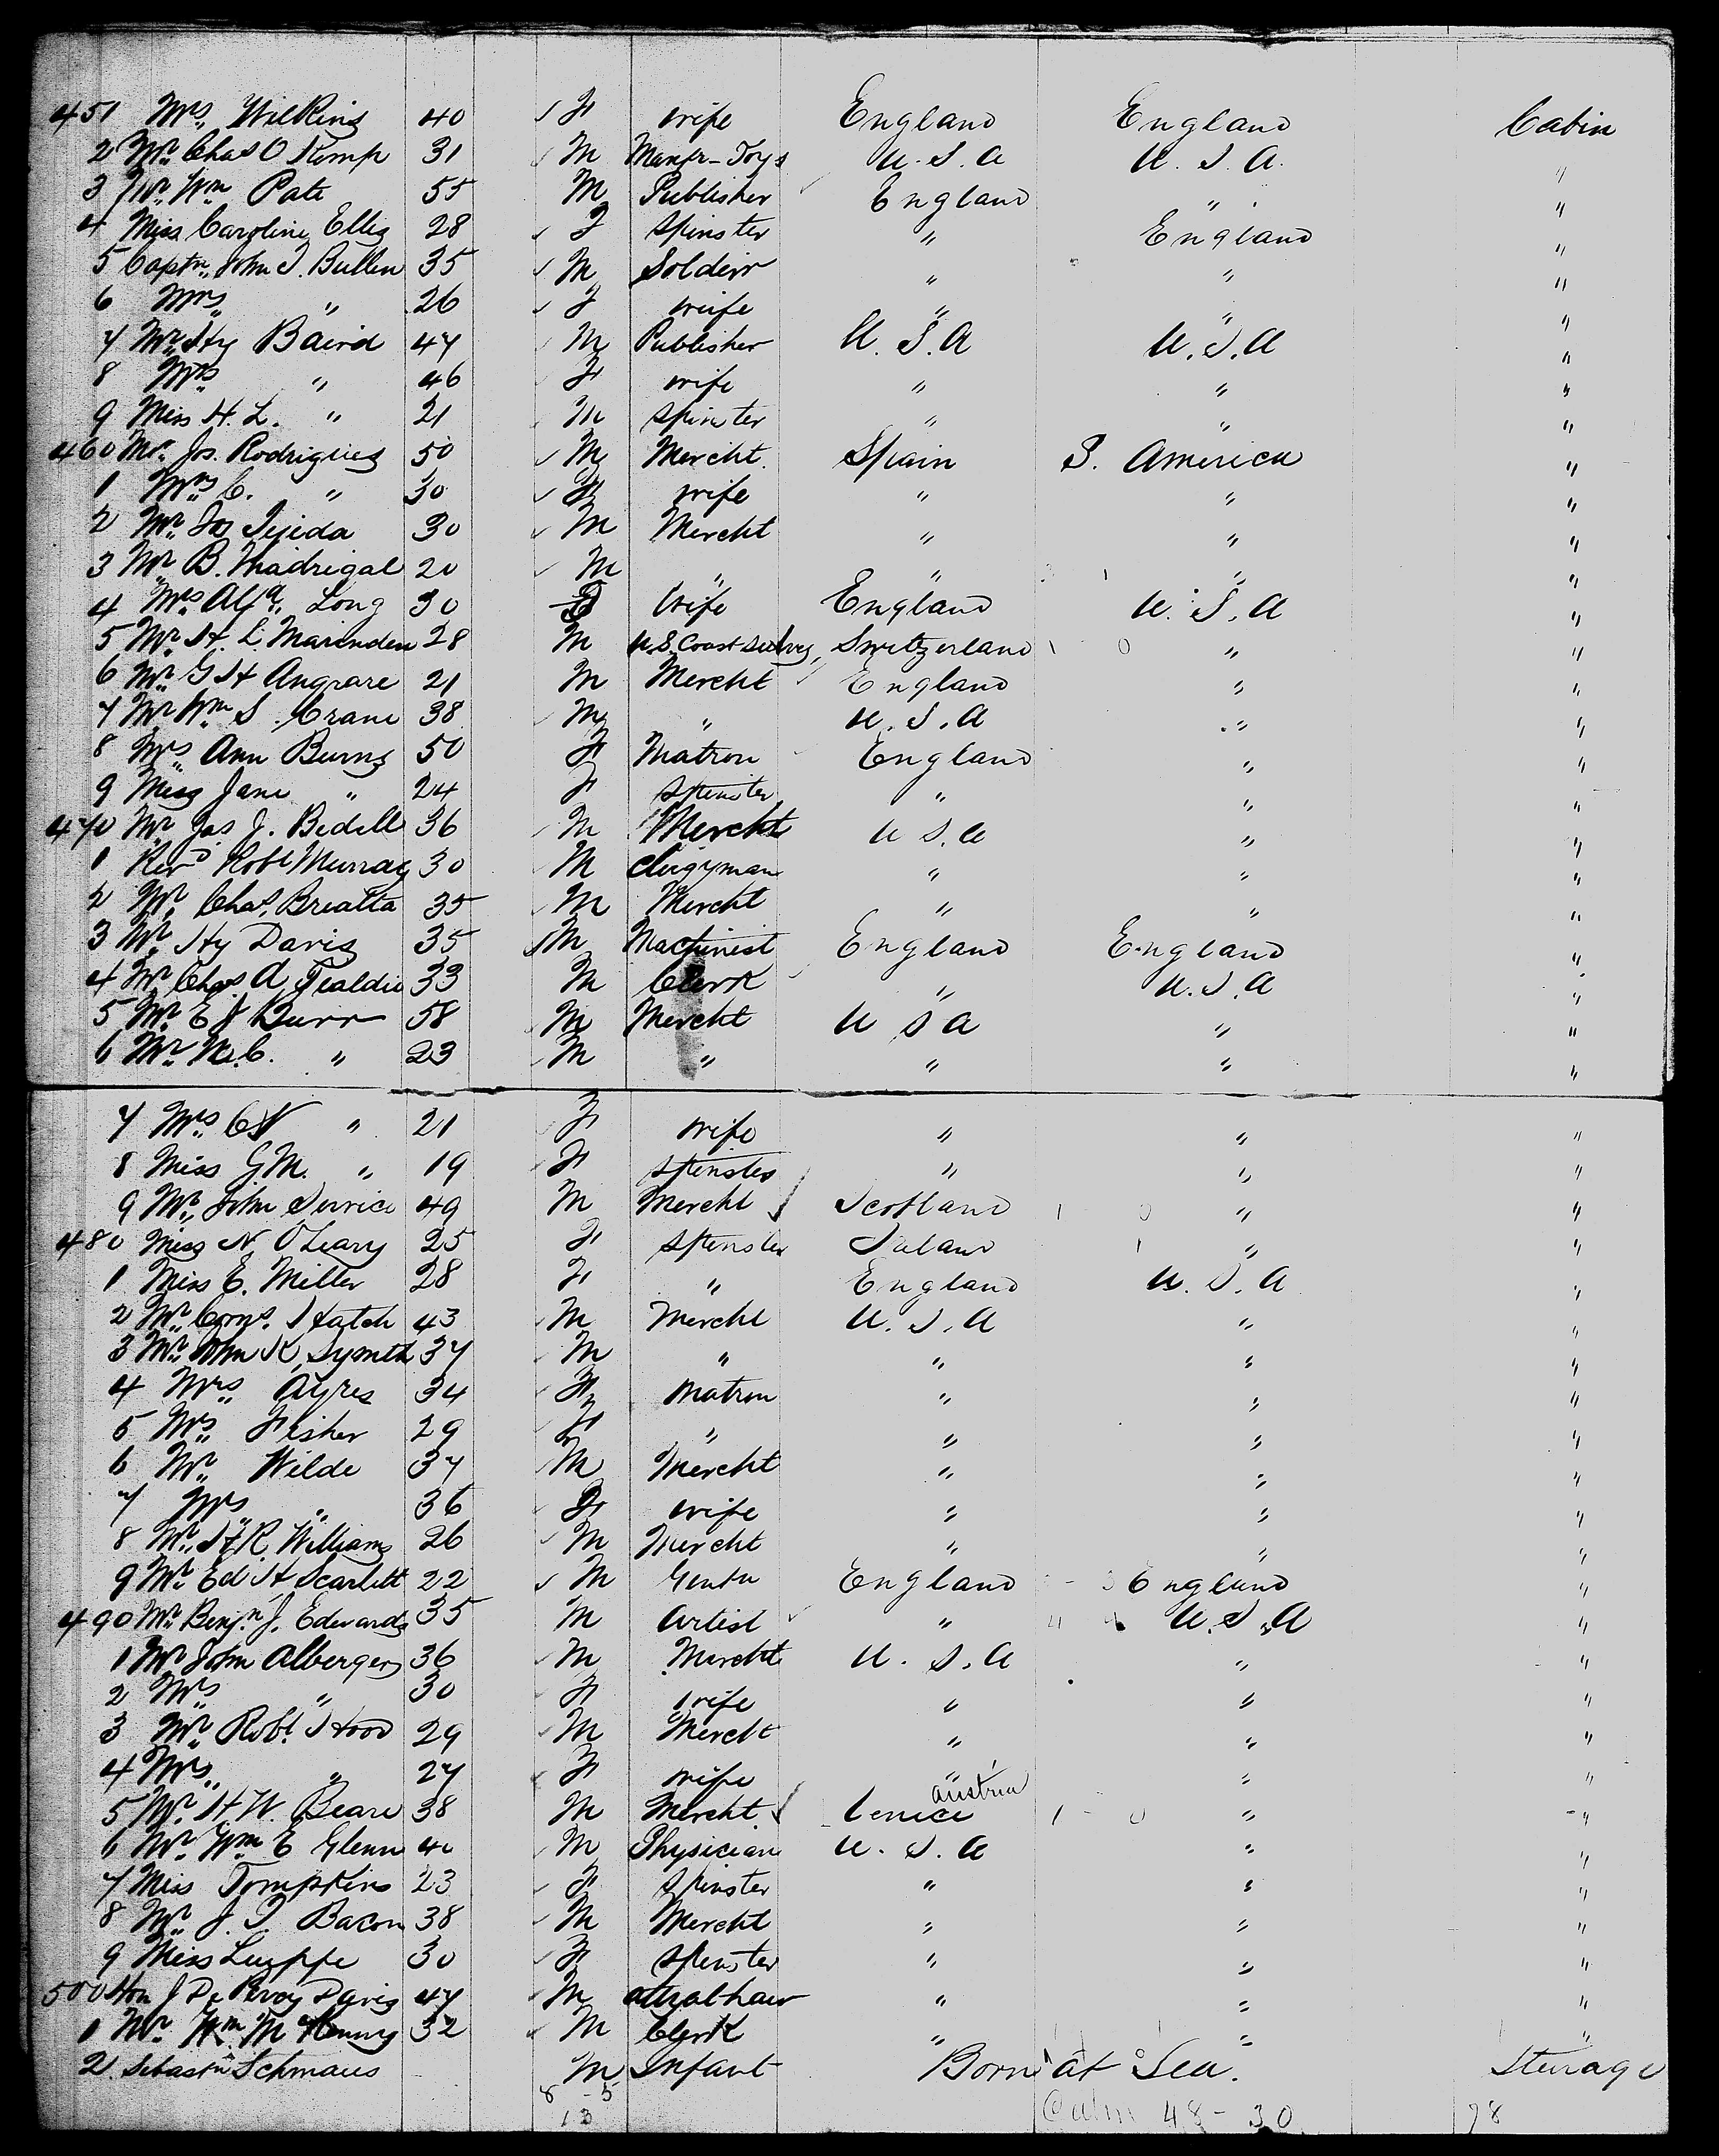 451 Mrs. Wilkins 40 F wife England England Cabin
2 Mr. Chas O Kemp 31 M Manfr-Toys U.S.A U.S.A. "
3 Mr. Wm Pate 55 M Publisher England " "
4 Miss Caroline Ellis 28 F Spinster " England "
5 Captn. John T. Bullen 35 M Soldeir " " "
6 Mrs. " 26 F wife " " "
7 Mr. Hy Baird 47 M Publisher U.S.A U.S.A "
8 Mrs " 46 F wife " " "
9 Miss H. L. " 21 M Spinster " " "
460 Mr. Jos. Rodrigues 50 M Mercht. Spain S. America "
1 Mrs C. " 30 F wife " " "
2 Mr. Jos Tejida 30 M Mercht " " "
3 Mr. B. Madrigal 20 M " " " "
4 Mrs Alfd. Long 30 F Wife England U.S.A "
5 Mr. H. L. Marinden 28 M U.S. Coast Survey Switzerland 1 0 " "
6 Mr. G H Angrare 21 M Mercht England " "
7 Mr Wm S. Crane 38 M " U.S.A " "
8 Mrs Ann Burns 50 F Matron England " "
9 Miss Jane " 24 F Spinster " " "
470 Mr Jas J. Bedell 36 M Mercht U S.A " "
1 Revd Robt Murray 30 M Clergyman " " "
2 Mr. Chas. Breatta 35 M Mercht " " "
3 Mr. Hy Davis 35 M Machinist England England "
4 Mr Chas A 33 M Clerk " U.S.A "
5 Mr. E J Burr 58 M Mercht U S A " "
6 Mr. W. C. " 23 M " " " "
7 Mrs. C N " 21 F wife " " "
8 Miss G.M. " 19 F Spinster " " "
9 Mr. John Service 49 M Mercht Scotland 1 0 " "
480 Miss N. O'Leary 25 F Spinster Ireland 1 " "
1 Miss E. Miller 28 F " England U.S.A "
2 Mr. Corns. Hatch 43 M Mercht U.S.A " "
3 Mr. John K, Symeth 37 M " " " "
4 Mrs. Ayres 34 F Matron " " "
5 Mrs. Fisher 29 F " " " "
6 Mr. Wilde 37 M Mercht " " "
7 Mrs " 36 F wife " " "
8 Mr. H R. Williams 26 M Mercht " " "
9 Mr. Ed H Scarlett 22 M Gentn England England "
490 Mr. Benjn J. Edwards 35 M Artist " U.S.A "
1 Mr John Alberger 36 M Mercht U.S.A " "
2 Mrs " 30 F wife " " "
3 Mr. Robt. Hood 29 M Mercht " " "
4 Mrs. " 27 F wife " " "
austria
5 Mr. H W. Beare 38 M Mercht. Venice 1 - 0 " "
6 Mr. Wm E Glenn 40 M Physician U.S.A " "
7 Miss Tompkins 23 F Spinster " " "
8 Mr. J. T. Bacon 38 M Mercht " " "
9 Miss 30 F Spinster " " "
500 Hon J De Percy Davis 47 M " " "
1 Mr. Wm McKenny 32 M Clerk " " "
2 Sebastn Schmaus M Infant Born at Sea. Sterage
8 - 5
13 48 - 30 98